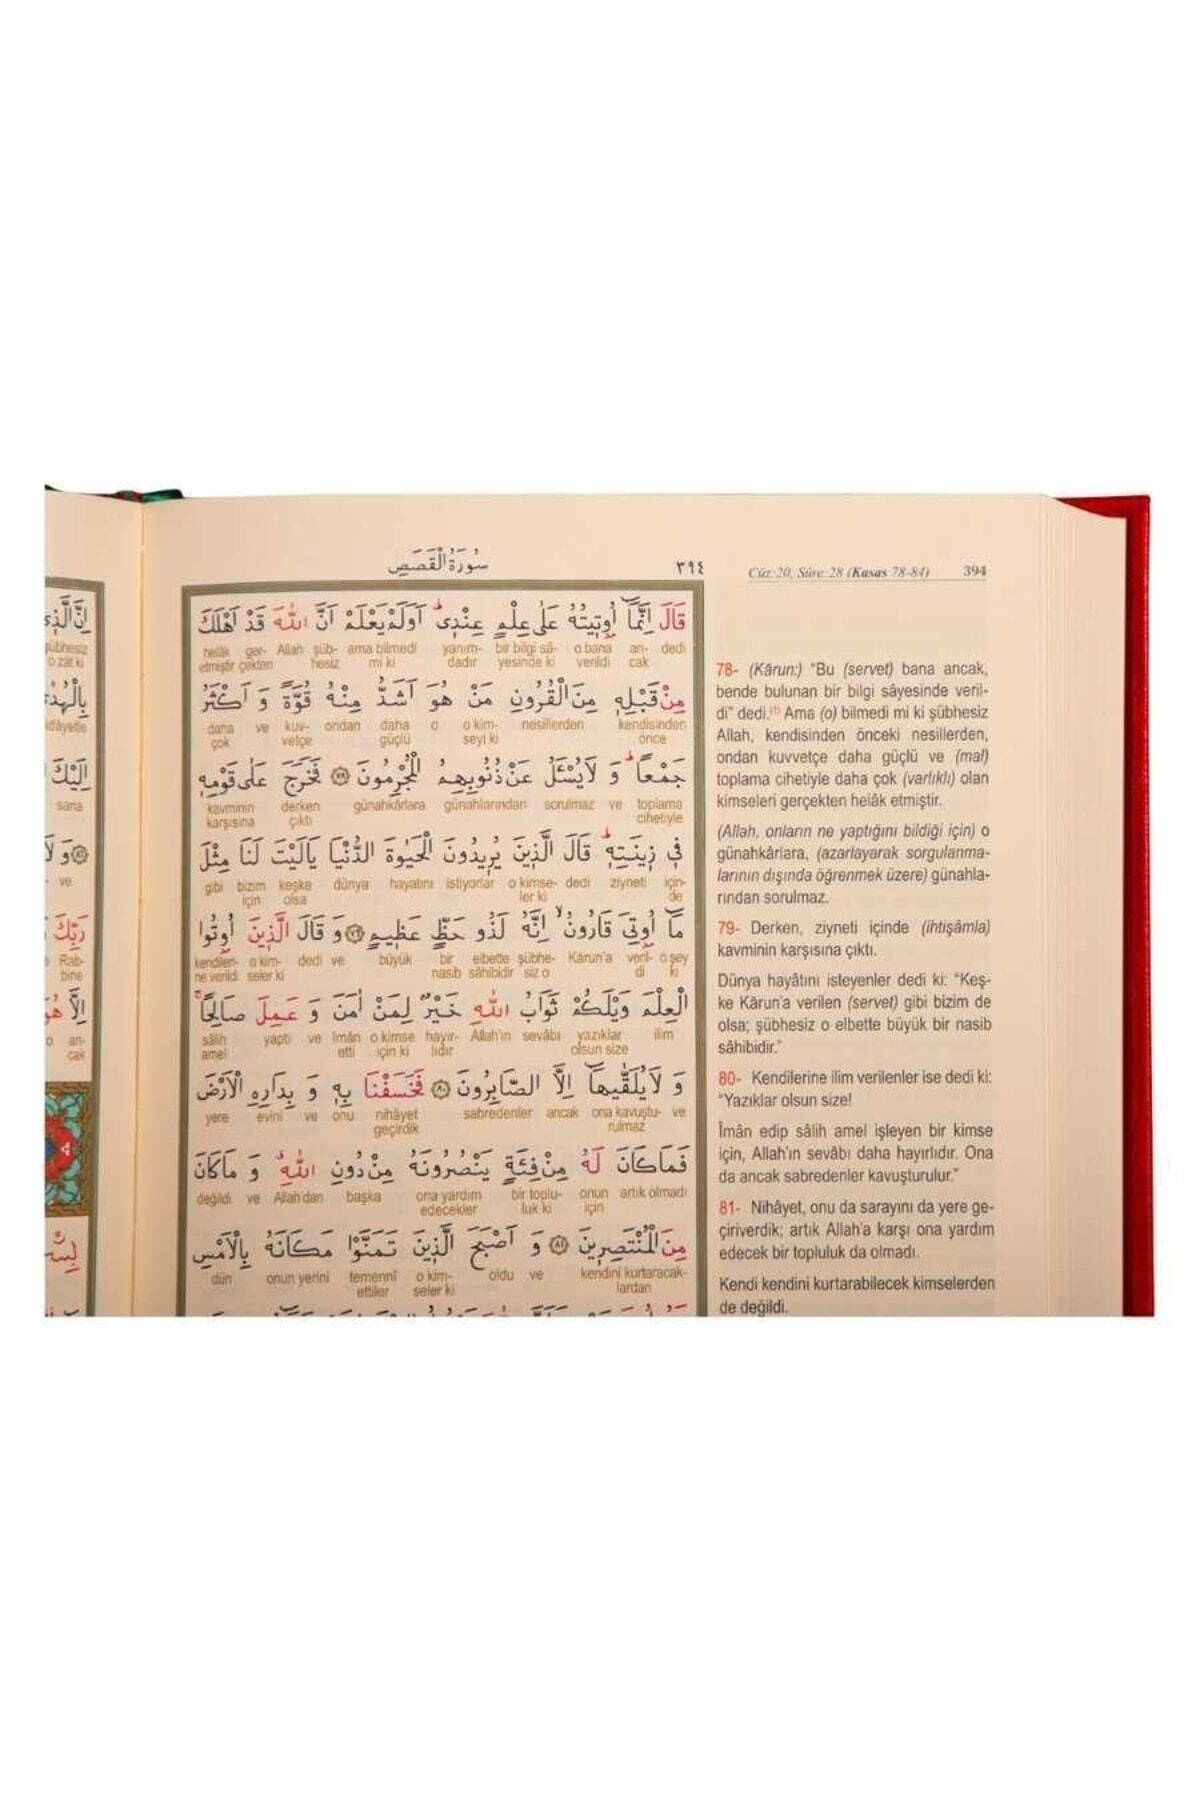 سُورَةُ الْقَصَصِ
٣٩٤
Cüz:20, Sûre:28 (Kasas 78-84) 394
قَالَ اِنَّمَٓا اُو۫ت۪يتُهُ عَلٰى عِلْمٍ عِنْد۪يۜ اَوَلَمْ يَعْلَمْ اَنَّ اللّٰهَ قَدْ اَهْلَكَ
dedi an- o bana bir bilgi sâ- yanım- ama bilmedi şüb- Allah ger- helâk
cak verildi yesinde ki dadır mi ki hesiz çekten etmiştir
مِنْ قَبْلِه۪ مِنَ الْقُرُونِ مَنْ هُوَ اَشَدُّ مِنْهُ قُوَّةً وَ اَكْثَرُ
kendisinden nesillerden o kim- o daha ondan kuv- ve daha
önce seyi ki güçlü vetçe çok
جَمْعًاۜ وَ لَا يُسْـَٔلُ عَنْ ذُنُوبِهِمُ الْمُجْرِمُونَ ﴿٧٨﴾ فَخَرَجَ عَلٰى قَوْمِه۪
toplama ve sorulmaz günahlarından günahkârlara derken kavminin
cihetiyle çıktı karşısına
ف۪ي ز۪ينَتِه۪ۜ قَالَ الَّذ۪ينَ يُر۪يدُونَ الْحَيٰوةَ الدُّنْيَا يَالَيْتَ لَنَا مِثْلَ
için- ziyneti dedi o kimse- istiyorlar hayatını dünya keşke bizim gibi
de ler ki olsa için
مَٓا اُو۫تِيَ قَارُونُۙ اِنَّهُ لَذُو حَظٍّ عَظ۪يمٍ ﴿٧٩﴾ وَ قَالَ الَّذ۪ينَ اُو۫تُوا
o şey veril- Kârun'a şübhe- elbette bir büyük ve dedi o kim- kendileri-
ki di siz o nasib sâhibidir seler ki ne verildi
الْعِلْمَ وَيْلَكُمْ ثَوَابُ اللّٰهِ خَيْرٌ لِمَنْ اٰمَنَ وَ عَمِلَ صَالِحًاۚ
ilim yazıklar sevâbı Allah'ın hayır- o kimse îmân ve yaptı sâlih
olsun size lıdır için ki etti amel
وَ لَا يُلَقّٰيهَٓا اِلَّا الصَّابِرُونَ ﴿٨٠﴾ فَخَسَفْنَا بِه۪ وَ بِدَارِهِ الْاَرْضَ
ve ona kavuştu- ancak sabredenler nihâyet onu ve evini yere
rulmaz geçirdik
فَمَا كَانَ لَهُ مِنْ فِئَةٍ يَنْصُرُونَهُ مِنْ دُونِ اللّٰهِۗ وَ مَا كَانَ
artık olmadı onun bir toplu- ona yardım başka Allah'dan ve değildi
için luk ki edecekler
مِنَ الْمُنْتَصِر۪ينَ ﴿٨١﴾ وَ اَصْبَحَ الَّذ۪ينَ تَمَنَّوْا مَكَانَهُ بِالْاَمْسِ
kendini kurtaracak- ve oldu o kim- temennî onun yerini dün
lardan seler ki ettiler
78- (Kârun:) "Bu (servet) bana ancak,
bende bulunan bir bilgi sâyesinde veril-
di" dedi.(1) Ama (o) bilmedi mi ki şübhesiz
Allah, kendisinden önceki nesillerden,
ondan kuvvetçe daha güçlü ve (mal)
toplama cihetiyle daha çok (varlıklı) olan
kimseleri gerçekten helâk etmiştir.
(Allah, onların ne yaptığını bildiği için) o
günahkârlara, (azarlayarak sorgulanma-
larının dışında öğrenmek üzere) günahla-
rından sorulmaz.
79- Derken, ziyneti içinde (ihtişâmla)
kavminin karşısına çıktı.
Dünya hayâtını isteyenler dedi ki: "Keş-
ke Kârun'a verilen (servet) gibi bizim de
olsa; şübhesiz o elbette büyük bir nasib
sâhibidir."
80- Kendilerine ilim verilenler ise dedi ki:
"Yazıklar olsun size!
Îmân edip sâlih amel işleyen bir kimse
için, Allah'ın sevâbı daha hayırlıdır. Ona
da ancak sabredenler kavuşturulur."
81- Nihâyet, onu da sarayını da yere ge-
çiriverdik; artık Allah'a karşı ona yardım
edecek bir topluluk da olmadı.
Kendi kendini kurtarabilecek kimselerden
de değildi.
اِنَّ الَّذ۪ي
şübhesiz
o zât ki
بِالْهُدٰى
idâyetle
اِلَيْكَ
sana
وَ لَا
ve
رَبِّكَ
Rab-
bine
اِلَّا هُوَ
o an-
cak